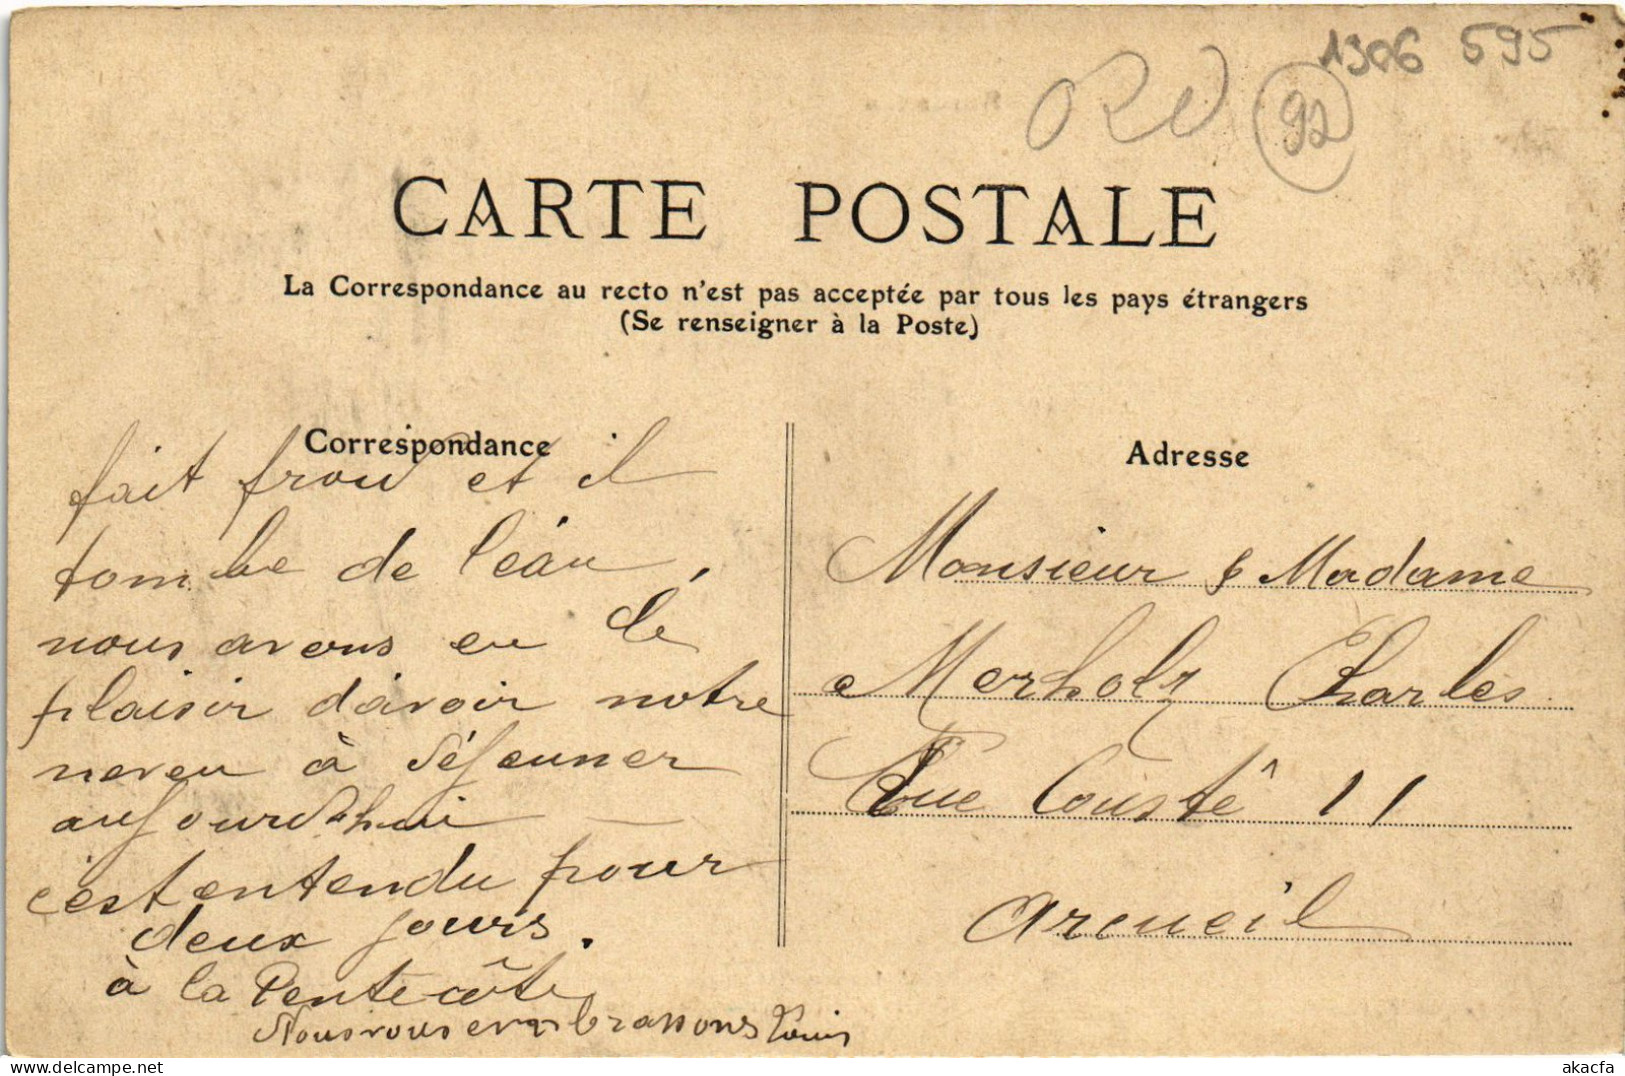 1306 595
92
CARTE POSTALE
La Correspondance au recto n'est pas acceptée par tous les pays étrangers
(Se renseigner à la Poste)
Correspondance
fait froid et il
tombe de l'eau,
nous avons eu le
plaisir d'avoir notre
neveu à déjeuner
aujourd'hui —
c'est entendu pour
deux jours.
à la Pentecôte
Nous vous embrassons Louis
Adresse
Monsieur & Madame
Merholz Charles
Rue Cousté 11
Arcueil
akacfa